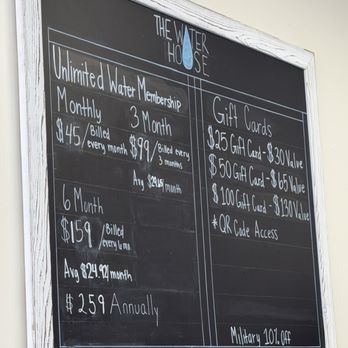 THE WATER
HOUSE
Unlimited Water Membership
Monthly
$45/Billed every month
3 Month
$99/Billed every 3 months
6 Month
$159/Billed every 6 mo
Avg $24.92/month
$259 Annually
Gift Cards
$25 Gift Card - $30 Value
$50 Gift Card - $65 Value
$100 Gift Card - $130 Value
*QR Code Access
Military 10% Off